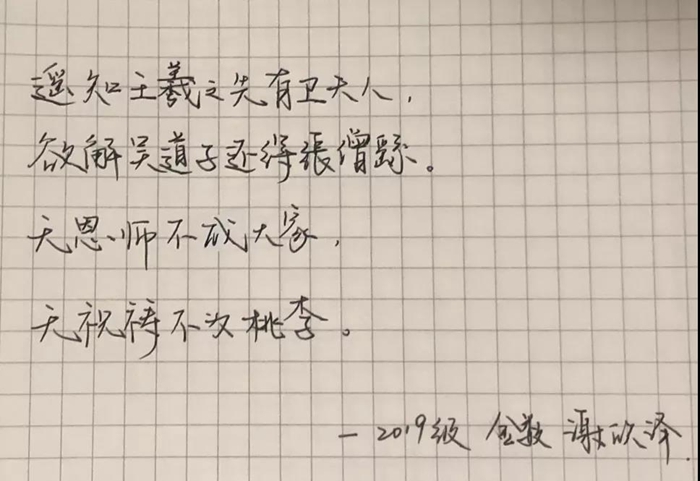 遥知王羲之先有卫夫人，
欲解吴道子还得張僧繇。
无恩师不成大家，
无祝祷不为桃李。
—2019级 金数 谢欣泽